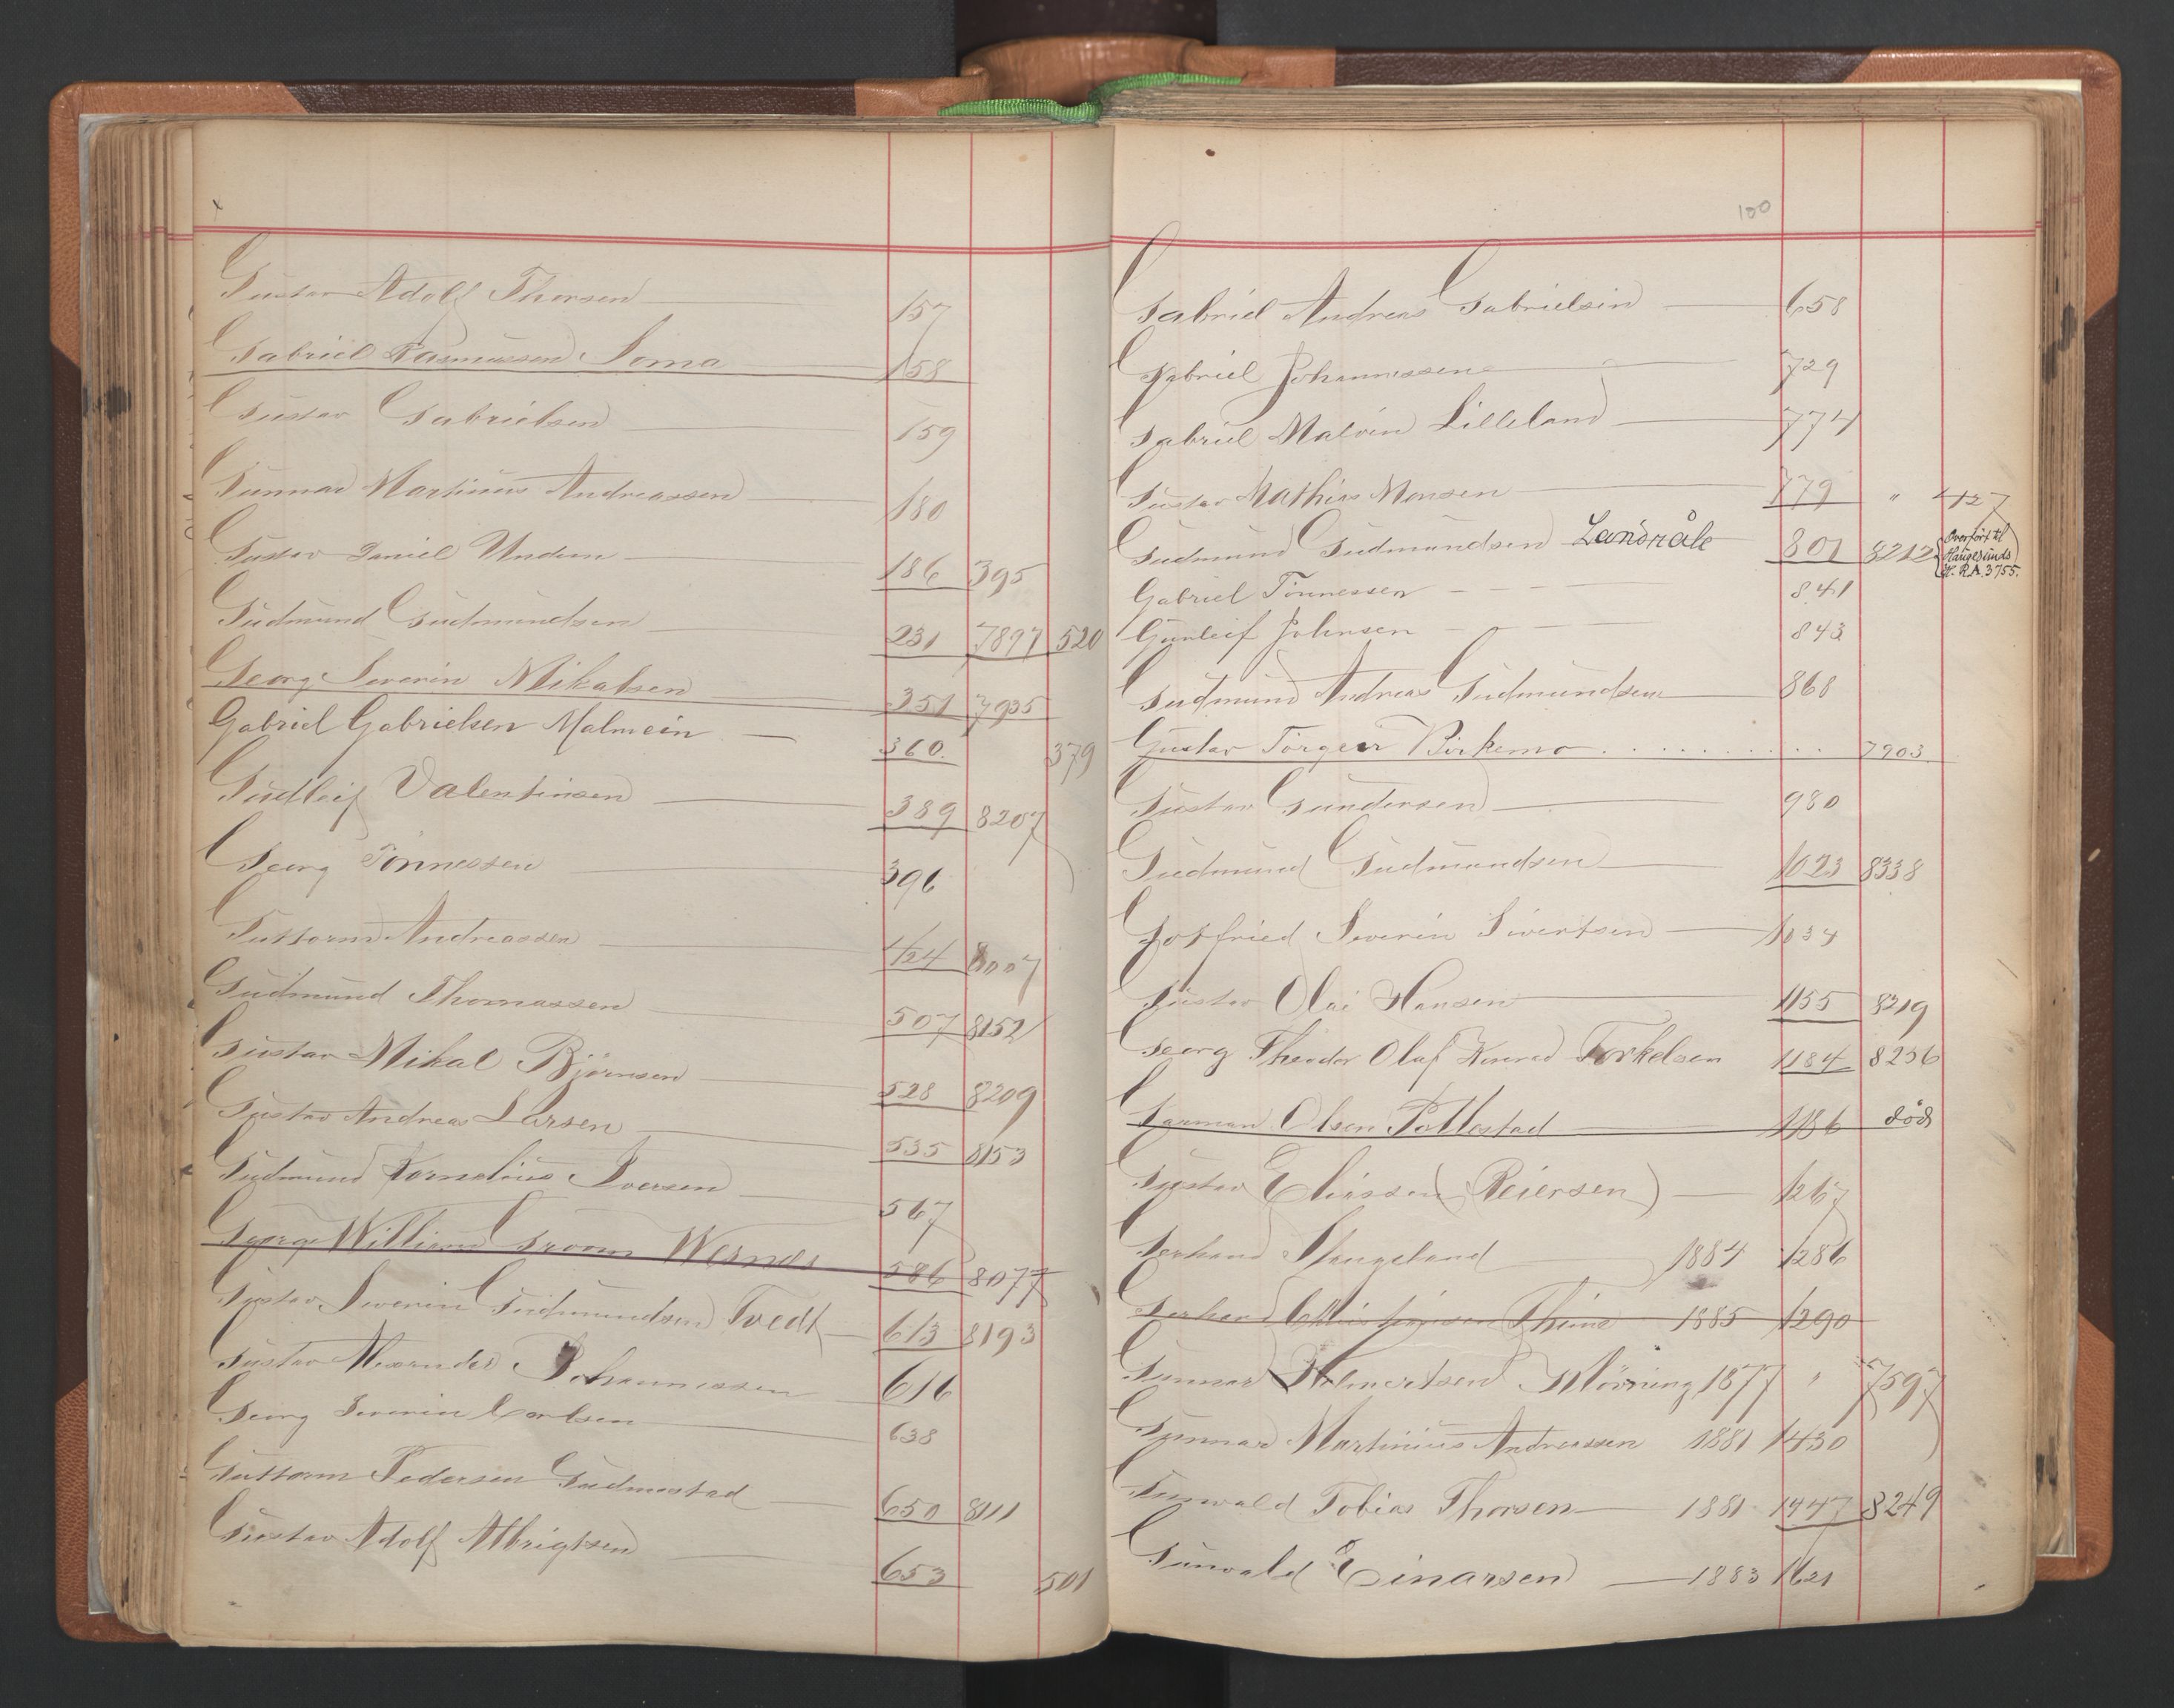 Gustav Adolf Thorsen 157
Gabriel Rasmussen Soma 158
Gustav Gabrielsen 159
Gunnar Martinius Andreassen 180
Gustav Daniel Undem 186 395
Gudmund Gudmundsen 231 7897 520
Georg Severin Mikalsen 351 7935
Gabriel Gabrielsen Malmein 360. 379
Gudleif Valentinsen 389 8207
Georg Tönnessen 396
Guttorm Andreassen 424 8007
Gudmund Thomassen 507 8152
Gustav Mikal Björnsen 528 8209
Gustav Andreas Larsen 535 8153
Gudmund Kornelius Iversen 567
George William Groom Wesnes 586 8077
Gustav Severin Gudmundsen Tvedt 613 8193
Gustav Alexander Johannessen 616
Georg Severin Carlsen 638
Guttorm Pedersen Gudmestad 650 8111
Gustav Adolf Albrigtsen 653 501
100
Gabriel Andreas Gabrielsen 658
Gabriel Johannessen 729
Gabriel Malvin Lilleland 774
Gustav Mathias Monsen 779 " 427
Gudmund Gudmundsen Landråk 801 8212 Overført til Haugesunds H. R.A. 3755.
Gabriel Tönnessen - - - 841
Gunleif Johnsen - - - 843
Gudmund Andreas Gudmundsen 868
Gustav Törgeir Birkemo . . . . . . . . . . 7903
Gustav Gundersen 980
Gudmund Gudmundsen 1023 8338
Gotfried Severin Sivertsen 1034
Gustav Olai Hansen 1155 8219
Georg Theodor Olaf Konrad Torkelsen 1184 8256
Garman Olsen Pollestad 1186 död
Gustav Eliassen (Reiersen) 1267
Gerhard Haugeland 1884 1286
Gerhard Christiansen Thime 1885 1290
Gunnar Halmertsen Mövning 1877 " 7597
Gunnar Martinius Andreassen 1881 1430
Gunvald Tobias Thorsen 1881 1447 8249
Gunvald Einarsen 1883 1621